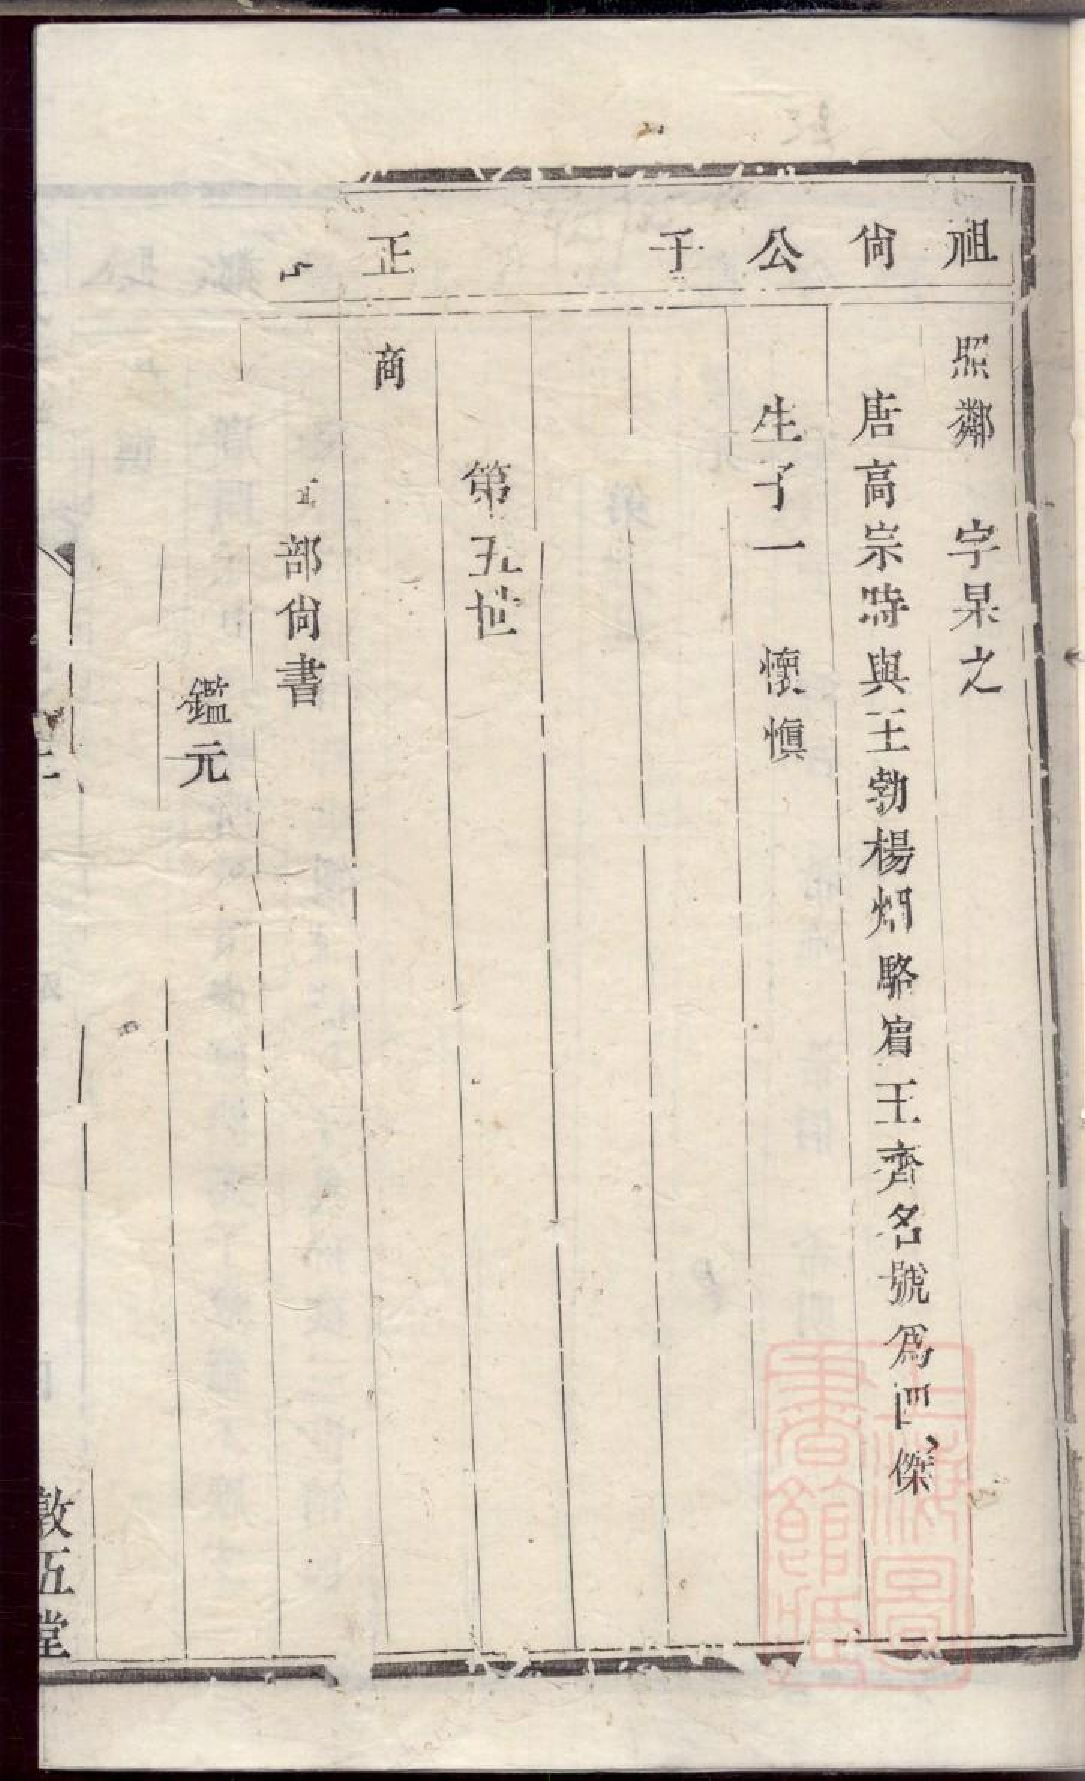 祖尙公于正
照鄰　字杲之
唐高宗時與王勃楊炯駱賓王齊名號爲四傑
生子一　懷愼
第五世
商
部尙書
鑑元
敦五堂
上海圖書館藏